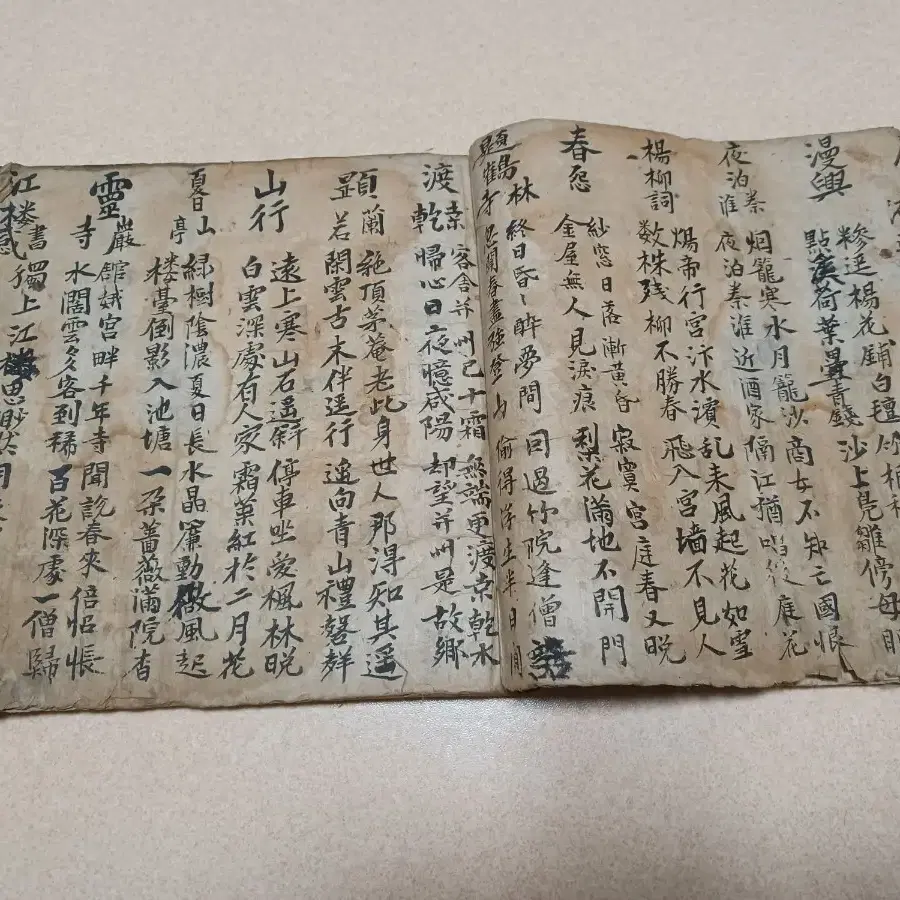 漫興
糝逕楊花鋪白氈
點溪荷葉疊青錢
沙上見雛傍母眠
夜泊秦淮
烟籠寒水月籠沙
夜泊秦淮近酒家
商女不知亡國恨
隔江猶唱後庭花
楊柳詞
煬帝行宮汴水濱
数株残柳不勝春
乱来風起花如雪
飛入宮墻不見人
春怨
紗窓日落漸黄昏
金屋無人見淚痕
寂寞宮庭春又晩
梨花滿地不開門
題鶴林寺
終日昏〻醉夢間
忽聞春盡強登山
回過竹院逢僧
偷得浮生半日閒
渡桒乾
客舎并州已十霜
歸心日夜憶咸陽
無端更渡京乾水
却望并州是故鄉
題蘭若
絶頂茅菴老此身
閑雲古木伴逕行
世人那得知其遥
遙向青山禮磬群
山行
遠上寒山石逕斜
白雲深處有人家
停車坐愛楓林晩
霜葉紅於二月花
夏日山亭
緑樹陰濃夏日長
楼臺倒影入池塘
水晶簾動微風起
一朶薔薇滿院香
靈巖寺
舘娥宮畔千年寺
水闊雲多客到稀
聞說春來倍怊悵
百花深處一僧歸
江楼書感
獨上江楼思眇然